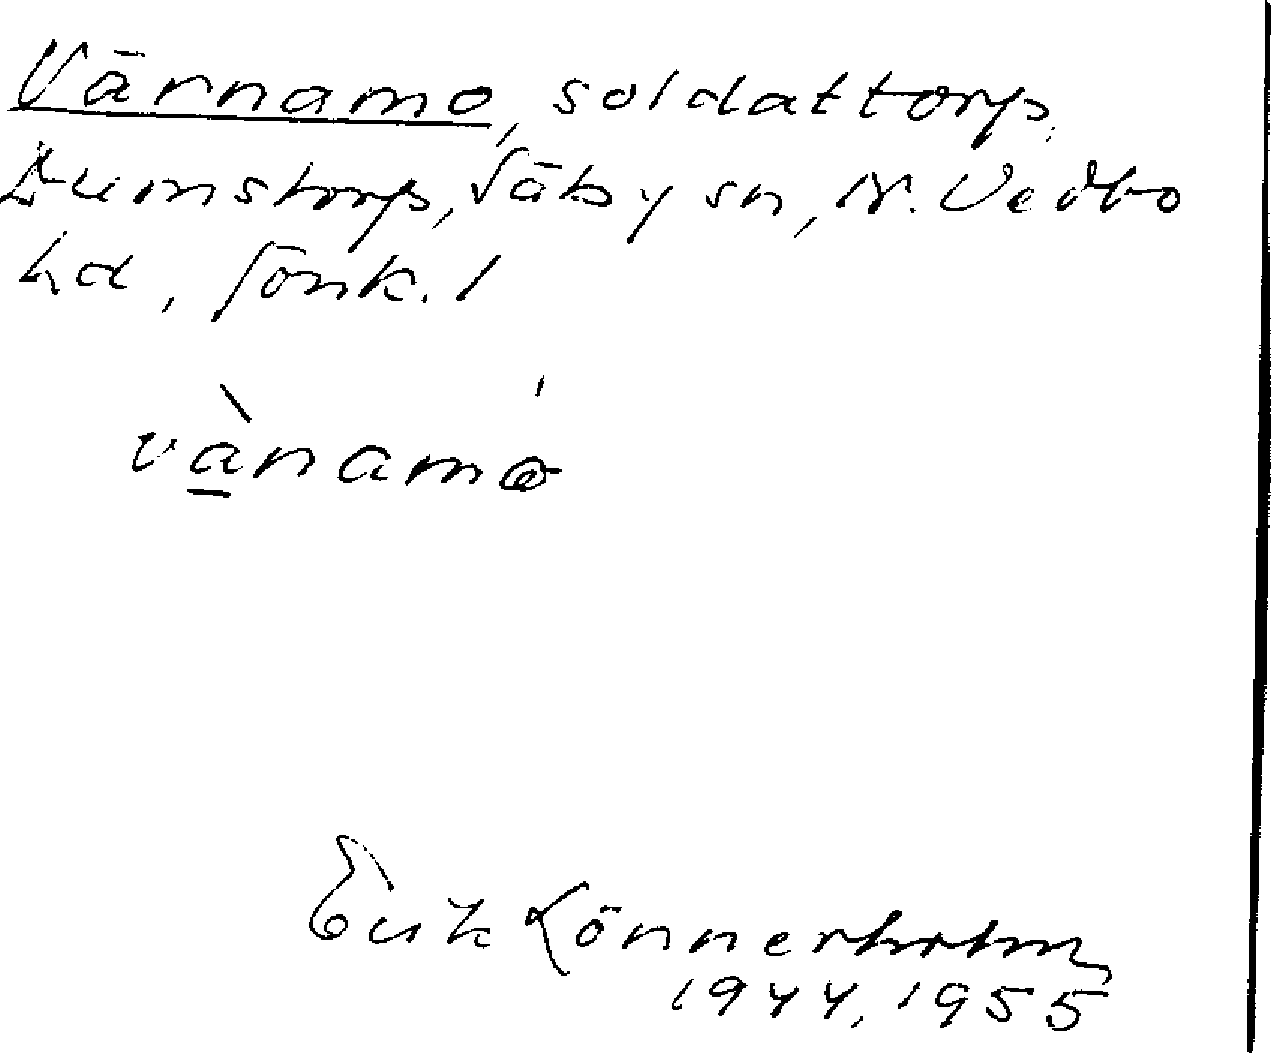 Värnamo, soldattorp,
Dumstorp, Säby sn, N. Vedbo
hd, Jönk. l
vànamó
Erik Lönnerholm
1944, 1955